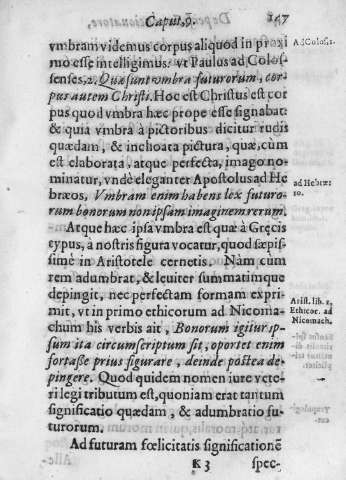 Caput, 9.
147
vmbram videmus corpus aliquod in proxi
mo esse intelligimus: vt Paulus ad Colos-
senses, 2. Quæ sunt vmbra futurorum, cor
pus autem Christi. Hoc est Christus est cor
pus quod vmbra hæc prope esse signabat:
& quia vmbra à pictoribus dicitur rudis
quædam, & inchoata pictura, quæ, cùm
est elaborata, atque perfecta, imago no-
minatur, vndè eleganter Apostolus ad He
bræos, Vmbram enim habens lex futuro-
rum bonorum non ipsam imaginem rerum.
Atque hæc ipsa vmbra est quæ à Gręcis
typus, à nostris figura vocatur, quod sæpis-
simè in Aristotele cernetis. Nàm cùm
rem adumbrat, & leuiter summatimque
depingit, nec perfectam formam expri-
mit, vt in primo ethicorum ad Nicoma-
chum his verbis ait, Bonorum igitur ip-
sum ita circumscriptum sit, oportet enim
fortasse prius figurare, deinde postea de-
pingere. Quod quidem nomen iure vete-
ri legi tributum est, quoniam erat tantùm
significatio quædam, & adumbratio fu-
turorum.
Ad futuram fœlicitatis significationē
K 3
spec-
Ad Colos. 2
ad Hebræ:
10.
Arist. lib. 1,
Ethicor. ad
Nicomach.